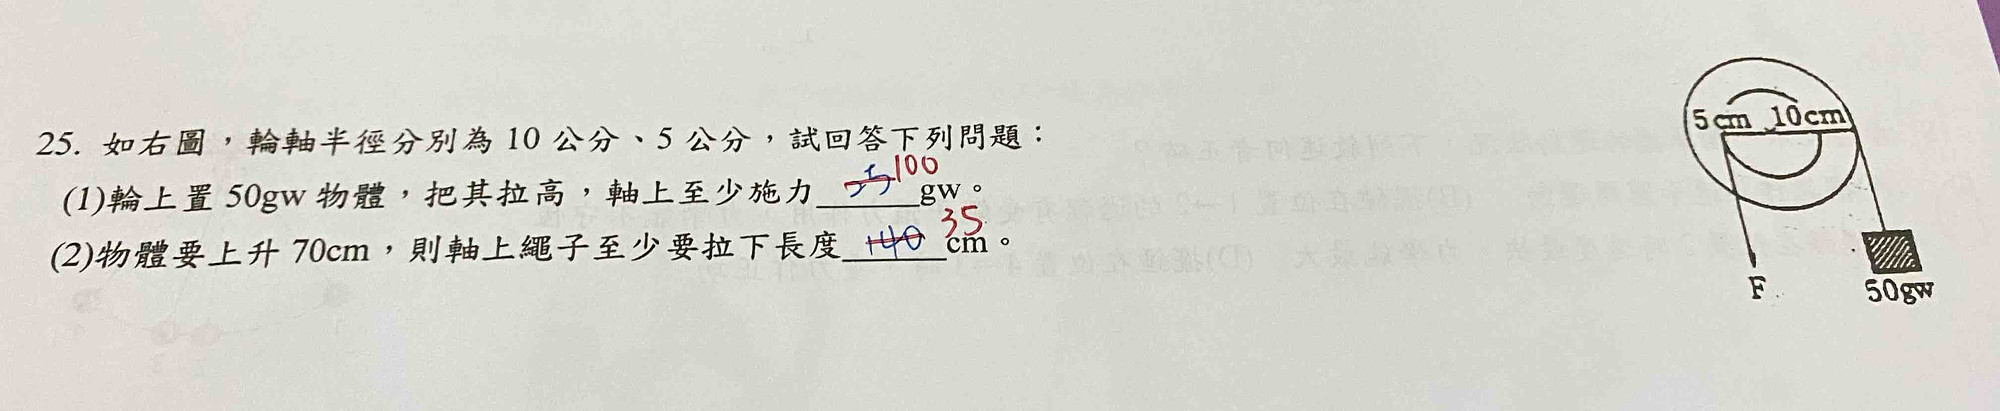 25. 如右圖，輪軸半徑分別為 10 公分、5 公分，試回答下列問題：
(1)輪上置 50gw 物體，把其拉高，軸上至少施力______gw。 100
(2)物體要上升 70cm，則軸上繩子至少要拉下長度 140 cm。 35
5cm 10cm
F
50gw